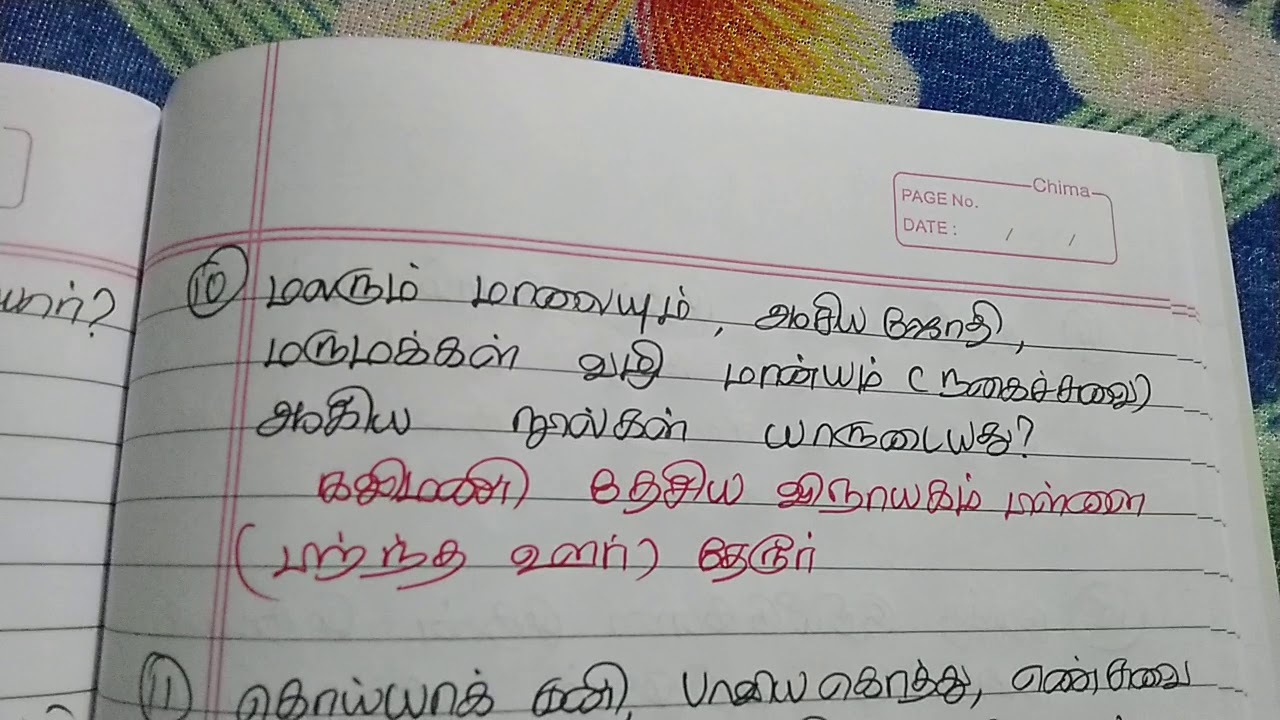 Chima
PAGE No.
DATE : / /
யார்?
10 மலரும் மாலையும், ஆசிய ஜோதி,
மருமக்கள் வழி மான்யம் (நகைச்சுவை)
ஆகிய நூல்கள் யாருடையது?
கவிமணி தேசிய விநாயகம் பிள்ளை
(பிறந்த ஊர்) தேரூர்
11 கொய்யாக் கனி, பாவியகொத்து, எண்சுவை